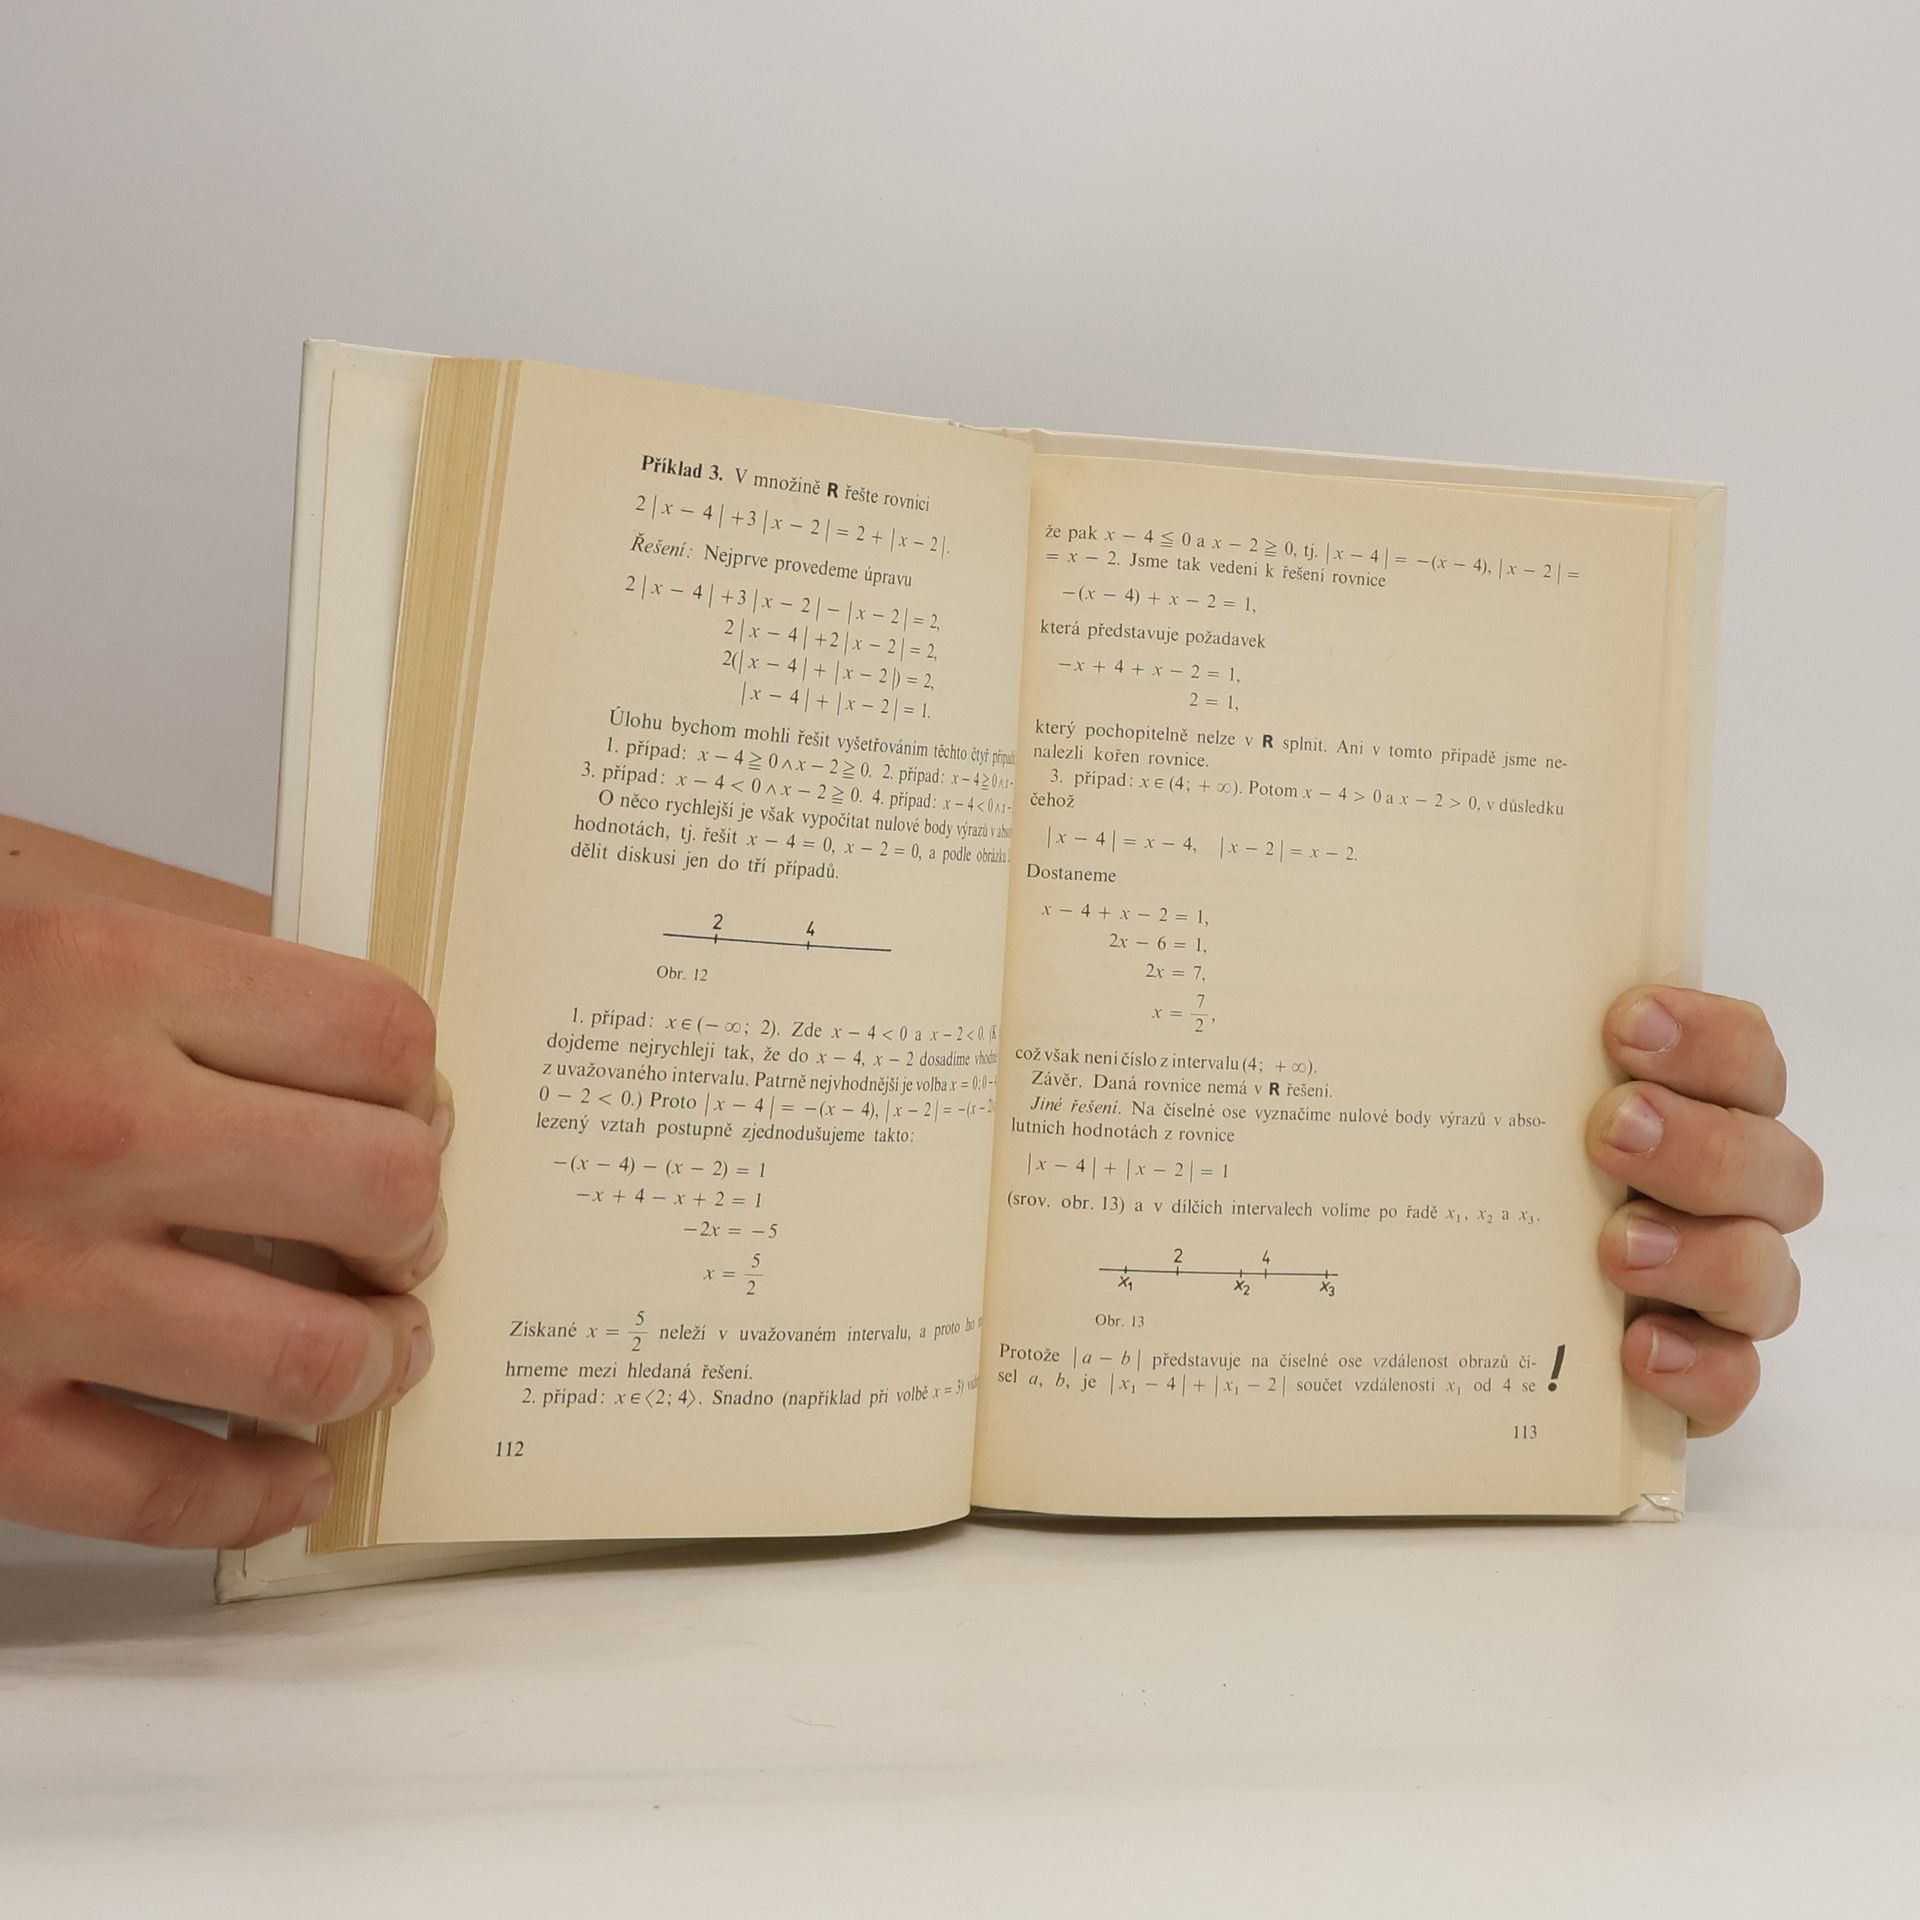 Příklad 3. V množině R řešte rovnici
2|x − 4| +3|x − 2| = 2 + |x − 2|.
Řešení: Nejprve provedeme úpravu
2|x − 4| +3|x − 2| − |x − 2| = 2,
2|x − 4| +2|x − 2| = 2,
2(|x − 4| + |x − 2|) = 2,
|x − 4| + |x − 2| = 1.
Úlohu bychom mohli řešit vyšetřováním těchto čtyř
1. případ: x − 4 ≧ 0 ∧ x − 2 ≧ 0. 2. případ: x − 4 ≧ 0 ∧ x −
3. případ: x − 4 < 0 ∧ x − 2 ≧ 0. 4. případ: x − 4 < 0 ∧ x −
O něco rychlejší je však vypočítat nulové body výrazů v
hodnotách, tj. řešit x − 4 = 0, x − 2 = 0, a podle obrázku
dělit diskusi jen do tří případů.
2 4
Obr. 12
1. případ: x ∈ (− ∞; 2). Zde x − 4 < 0 a x − 2 < 0.
dojdeme nejrychleji tak, že do x − 4, x − 2 dosadíme
z uvažovaného intervalu. Patrně nejvhodnější je volba x = 0;
0 − 2 < 0.) Proto |x − 4| = −(x − 4), |x − 2| = −(x −
lezený vztah postupně zjednodušujeme takto:
−(x − 4) − (x − 2) = 1
−x + 4 − x + 2 = 1
−2x = −5
x = 5/2
Získané x = 5/2 neleží v uvažovaném intervalu, a proto ho
hrneme mezi hledaná řešení.
2. případ: x ∈ ⟨2; 4⟩. Snadno (například při volbě x = 3)
112
že pak x − 4 ≦ 0 a x − 2 ≧ 0, tj. |x − 4| = −(x − 4), |x − 2| =
= x − 2. Jsme tak vedeni k řešení rovnice
−(x − 4) + x − 2 = 1,
která představuje požadavek
−x + 4 + x − 2 = 1,
2 = 1,
který pochopitelně nelze v R splnit. Ani v tomto případě jsme ne-
nalezli kořen rovnice.
3. případ: x ∈ (4; + ∞). Potom x − 4 > 0 a x − 2 > 0, v důsledku
čehož
|x − 4| = x − 4, |x − 2| = x − 2.
Dostaneme
x − 4 + x − 2 = 1,
2x − 6 = 1,
2x = 7,
x = 7/2,
což však není číslo z intervalu (4; + ∞).
Závěr. Daná rovnice nemá v R řešení.
Jiné řešení. Na číselné ose vyznačíme nulové body výrazů v abso-
lutních hodnotách z rovnice
|x − 4| + |x − 2| = 1
(srov. obr. 13) a v dílčích intervalech volíme po řadě x₁, x₂ a x₃.
2 4
x₁ x₂ x₃
Obr. 13
Protože |a − b| představuje na číselné ose vzdálenost obrazů čí-
sel a, b, je |x₁ − 4| + |x₁ − 2| součet vzdáleností x₁ od 4 se
!
113